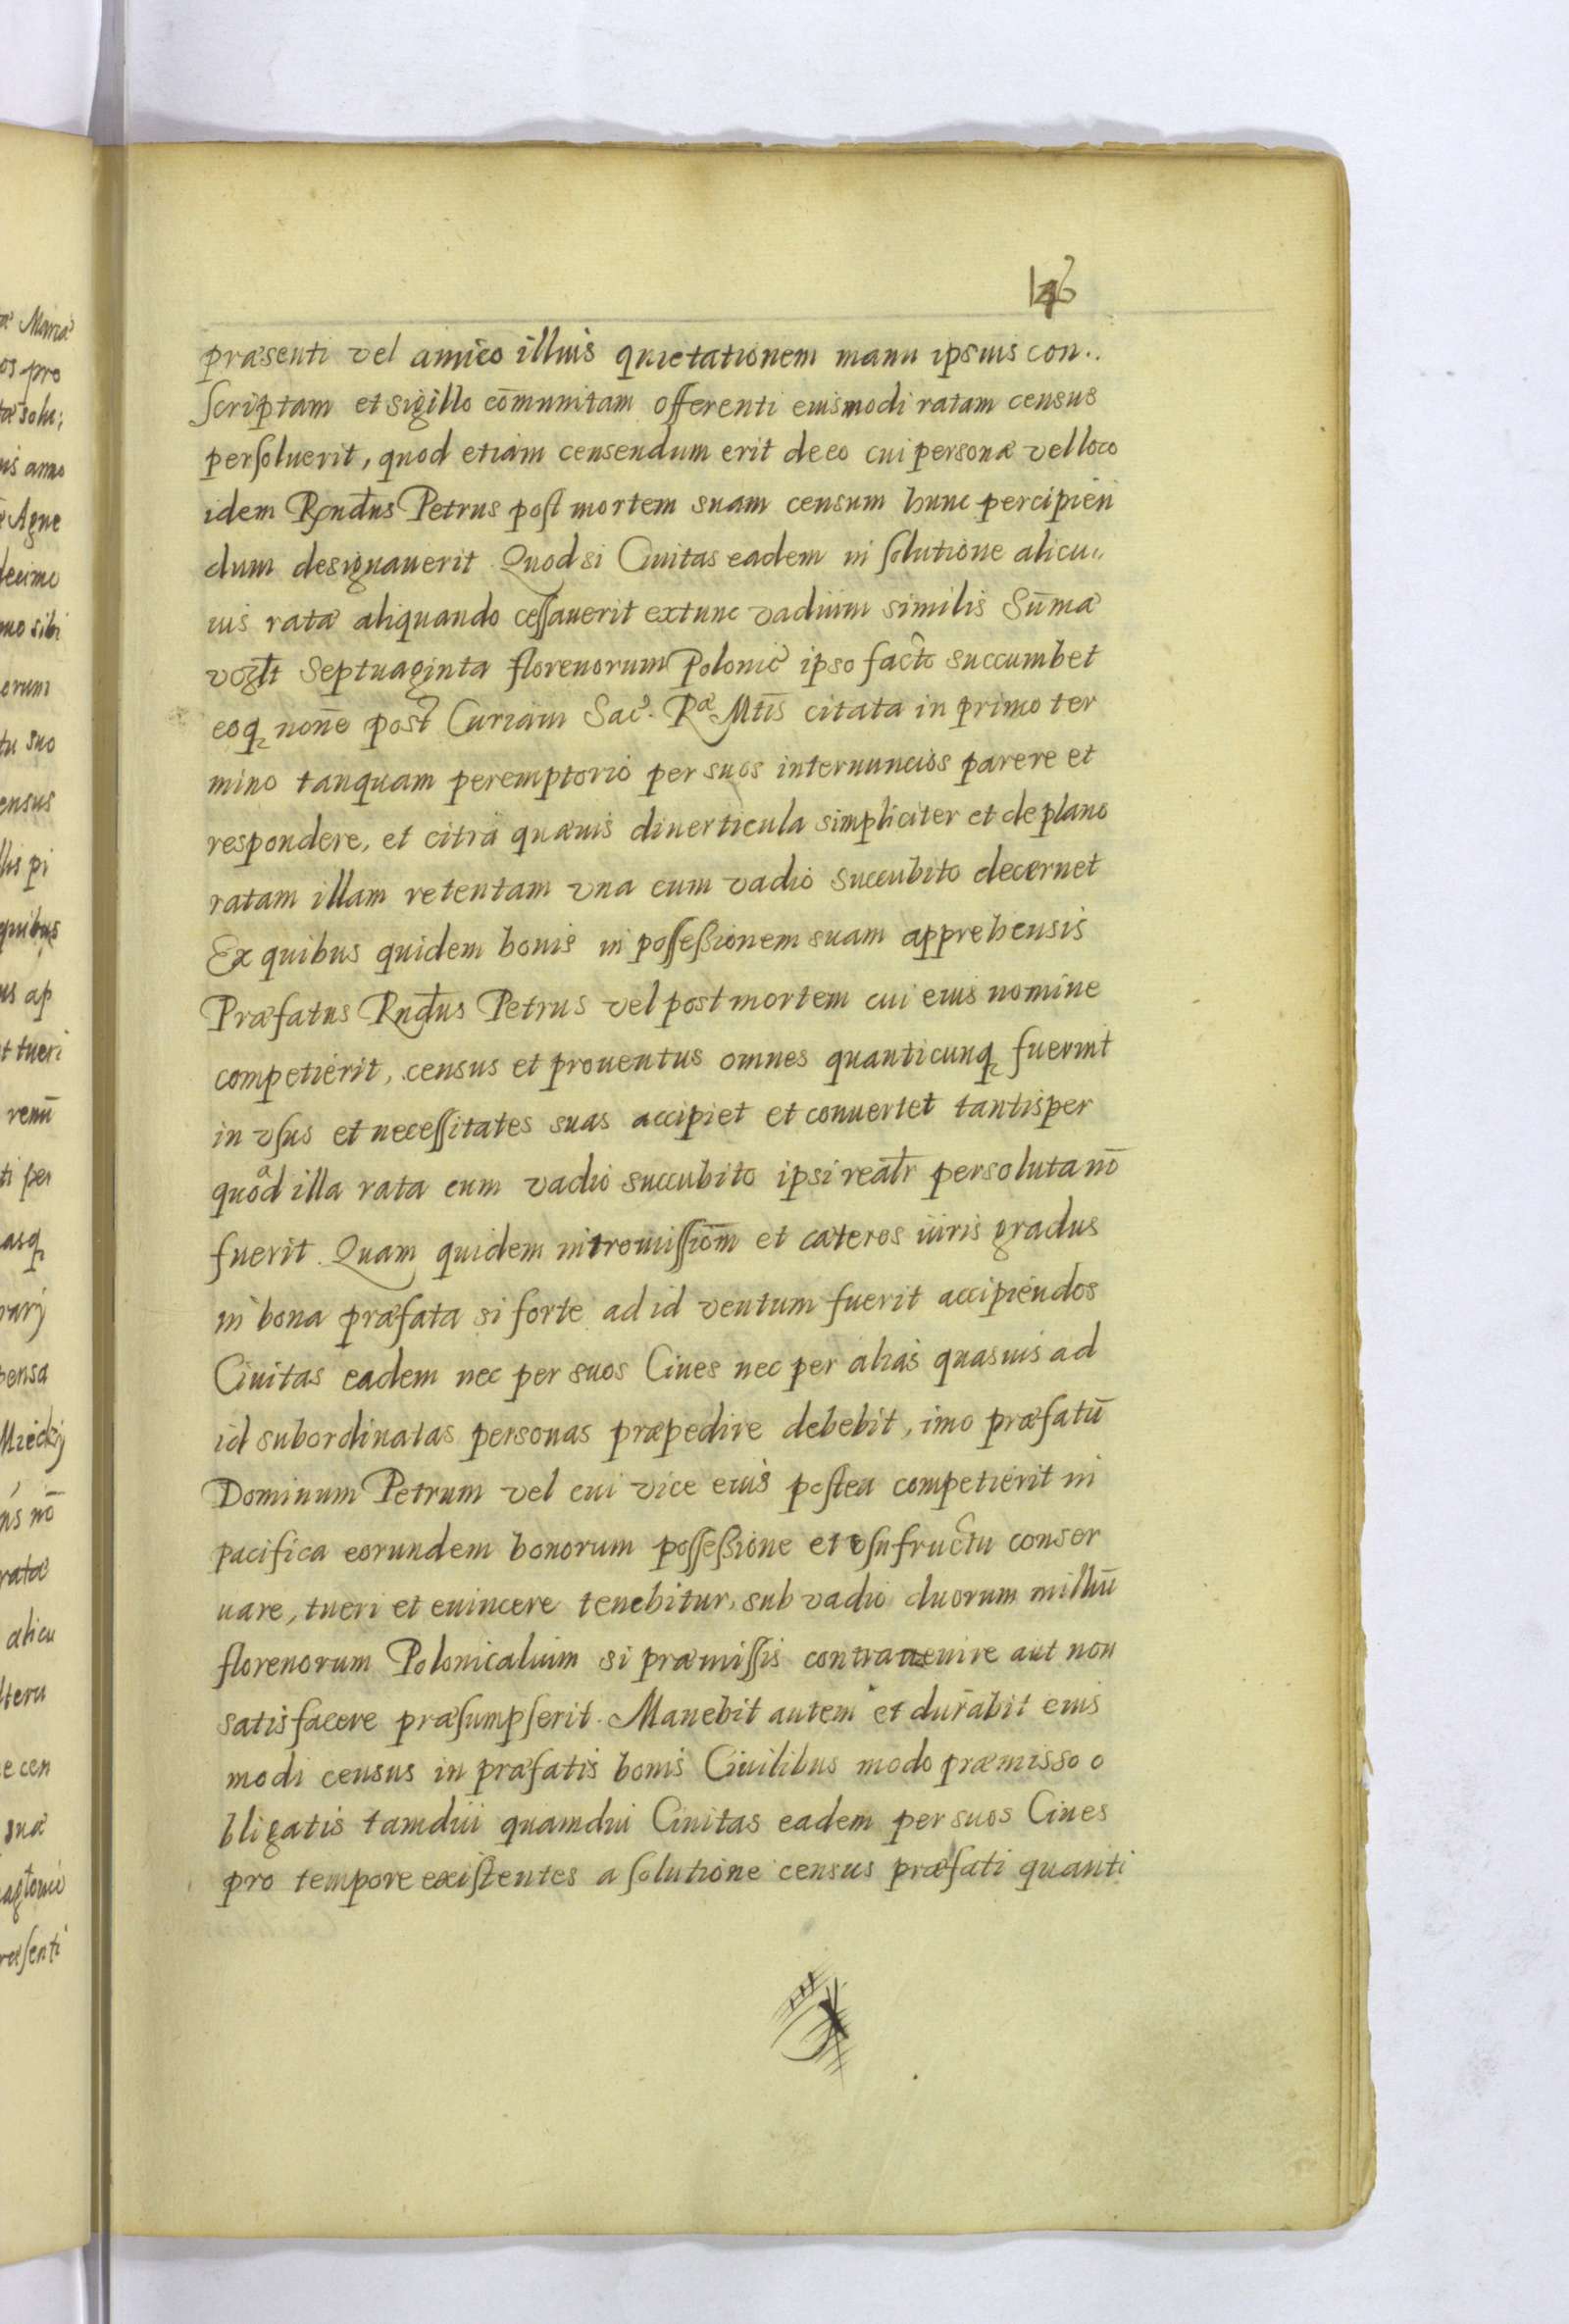 146
præsenti vel amico illius quietationem manu ipsius con..
scriptam et sigillo cōmunitam offerenti eiusmodi ratam census
persoluerit, quod etiam censendum erit de eo cui personæ vel loco
idem Rndus Petrus post mortem suam censum hunc percipien
dum designauerit. Quod si Ciuitas eadem in solutione alicu..
ius ratæ aliquando cessauerit extunc vadium similis Sūmæ
voglt Septuaginta florenorum Polonic ipso facto succumbet
eoq noīe post Curiam Sac. Ræ Mtis citata in primo ter
mino tanquam peremptorio per suos internuncios parere et
respondere, et citra quæuis diuerticula simpliciter et de plano
ratam illam retentam vna cum vadio succubito decernet
Ex quibus quidem bonis in possessionem suam apprehensis
Præfatus Rndus Petrus vel post mortem cui eius nomine
competierit, census et prouentus omnes quanticunq fuerint
in vsus et necessitates suas accipiet et conuertet tantisper
quoad illa rata cum vadio succubito ipsi realr persoluta nō
fuerit. Quam quidem intromissiom et cæteros iuris gradus
in bona præfata si forte ad id ventum fuerit accipiendos
Ciuitas eadem nec per suos Ciues nec per alias quasuis ad
id subordinatas personas præpedire debebit, imo præfatū
Dominum Petrum vel cui vice eius postea competierit in
pacifica eorundem bonorum possessione et vsufructu conser
uare, tueri et euincere tenebitur, sub vadio duorum milliū
florenorum Polonicalium si præmissis contrauenire aut non
satisfacere præsumpserit. Manebit autem et durabit eius
modi census in præfatis bonis Ciuilibus modo præmisso o
bligatis tamdiu quamdiu Ciuitas eadem per suos Ciues
pro tempore existentes a solutione census præfati quanti